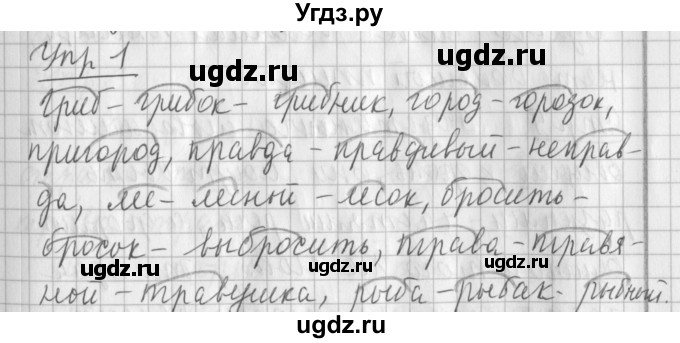 Угдз.ру
Упр 1
ugdz.ru
ugdz.ru
Гриб - грибок - грибник, город - горозок,
пригород, правда - правдивый - неправ-
да, ле - лесный - лесок, бросить -
бросок - выбросить, трава - травя-
ugdz.ru
ugdz.ru
ной - травушка, рыба - рыбак - рыбный.
ugdz.ru